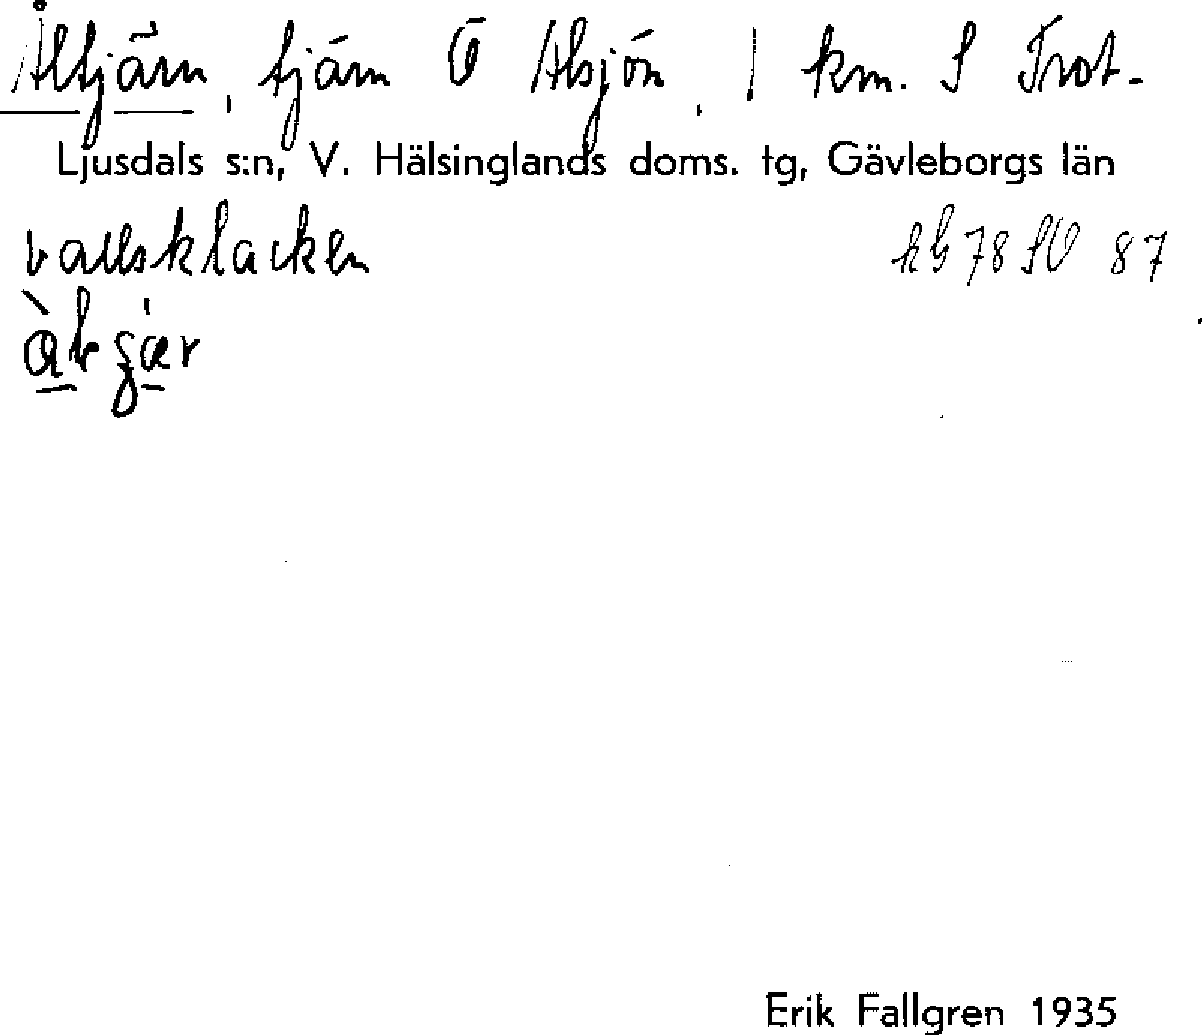 Åltjärn, tjärn Ö Alsjön, 1 km. S Trot-
Ljusdals s:n, V. Hälsinglands doms. tg, Gävleborgs län
vallsklacken 87
Erik Fallgren 1935